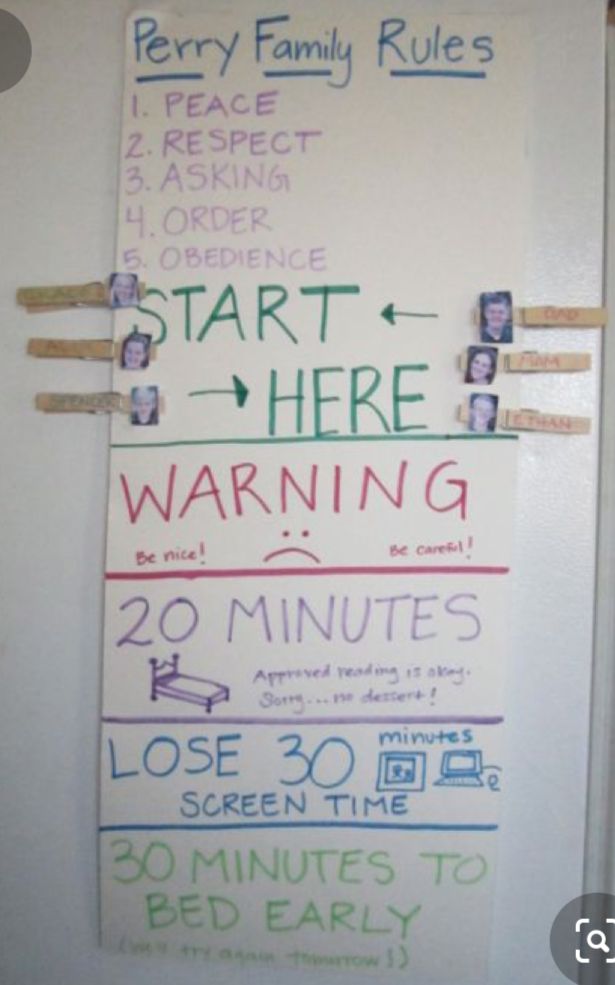 Perry Family Rules
1. PEACE
2. RESPECT
3. ASKING
4. ORDER
5. OBEDIENCE
START ←
DAD
MOM
→ HERE
ETHAN
WARNING
Be nice!
Be careful!
20 MINUTES
Approved reading is okay.
Sorry...no dessert!
LOSE 30 minutes
SCREEN TIME
30 MINUTES TO
BED EARLY
try again tomorrow